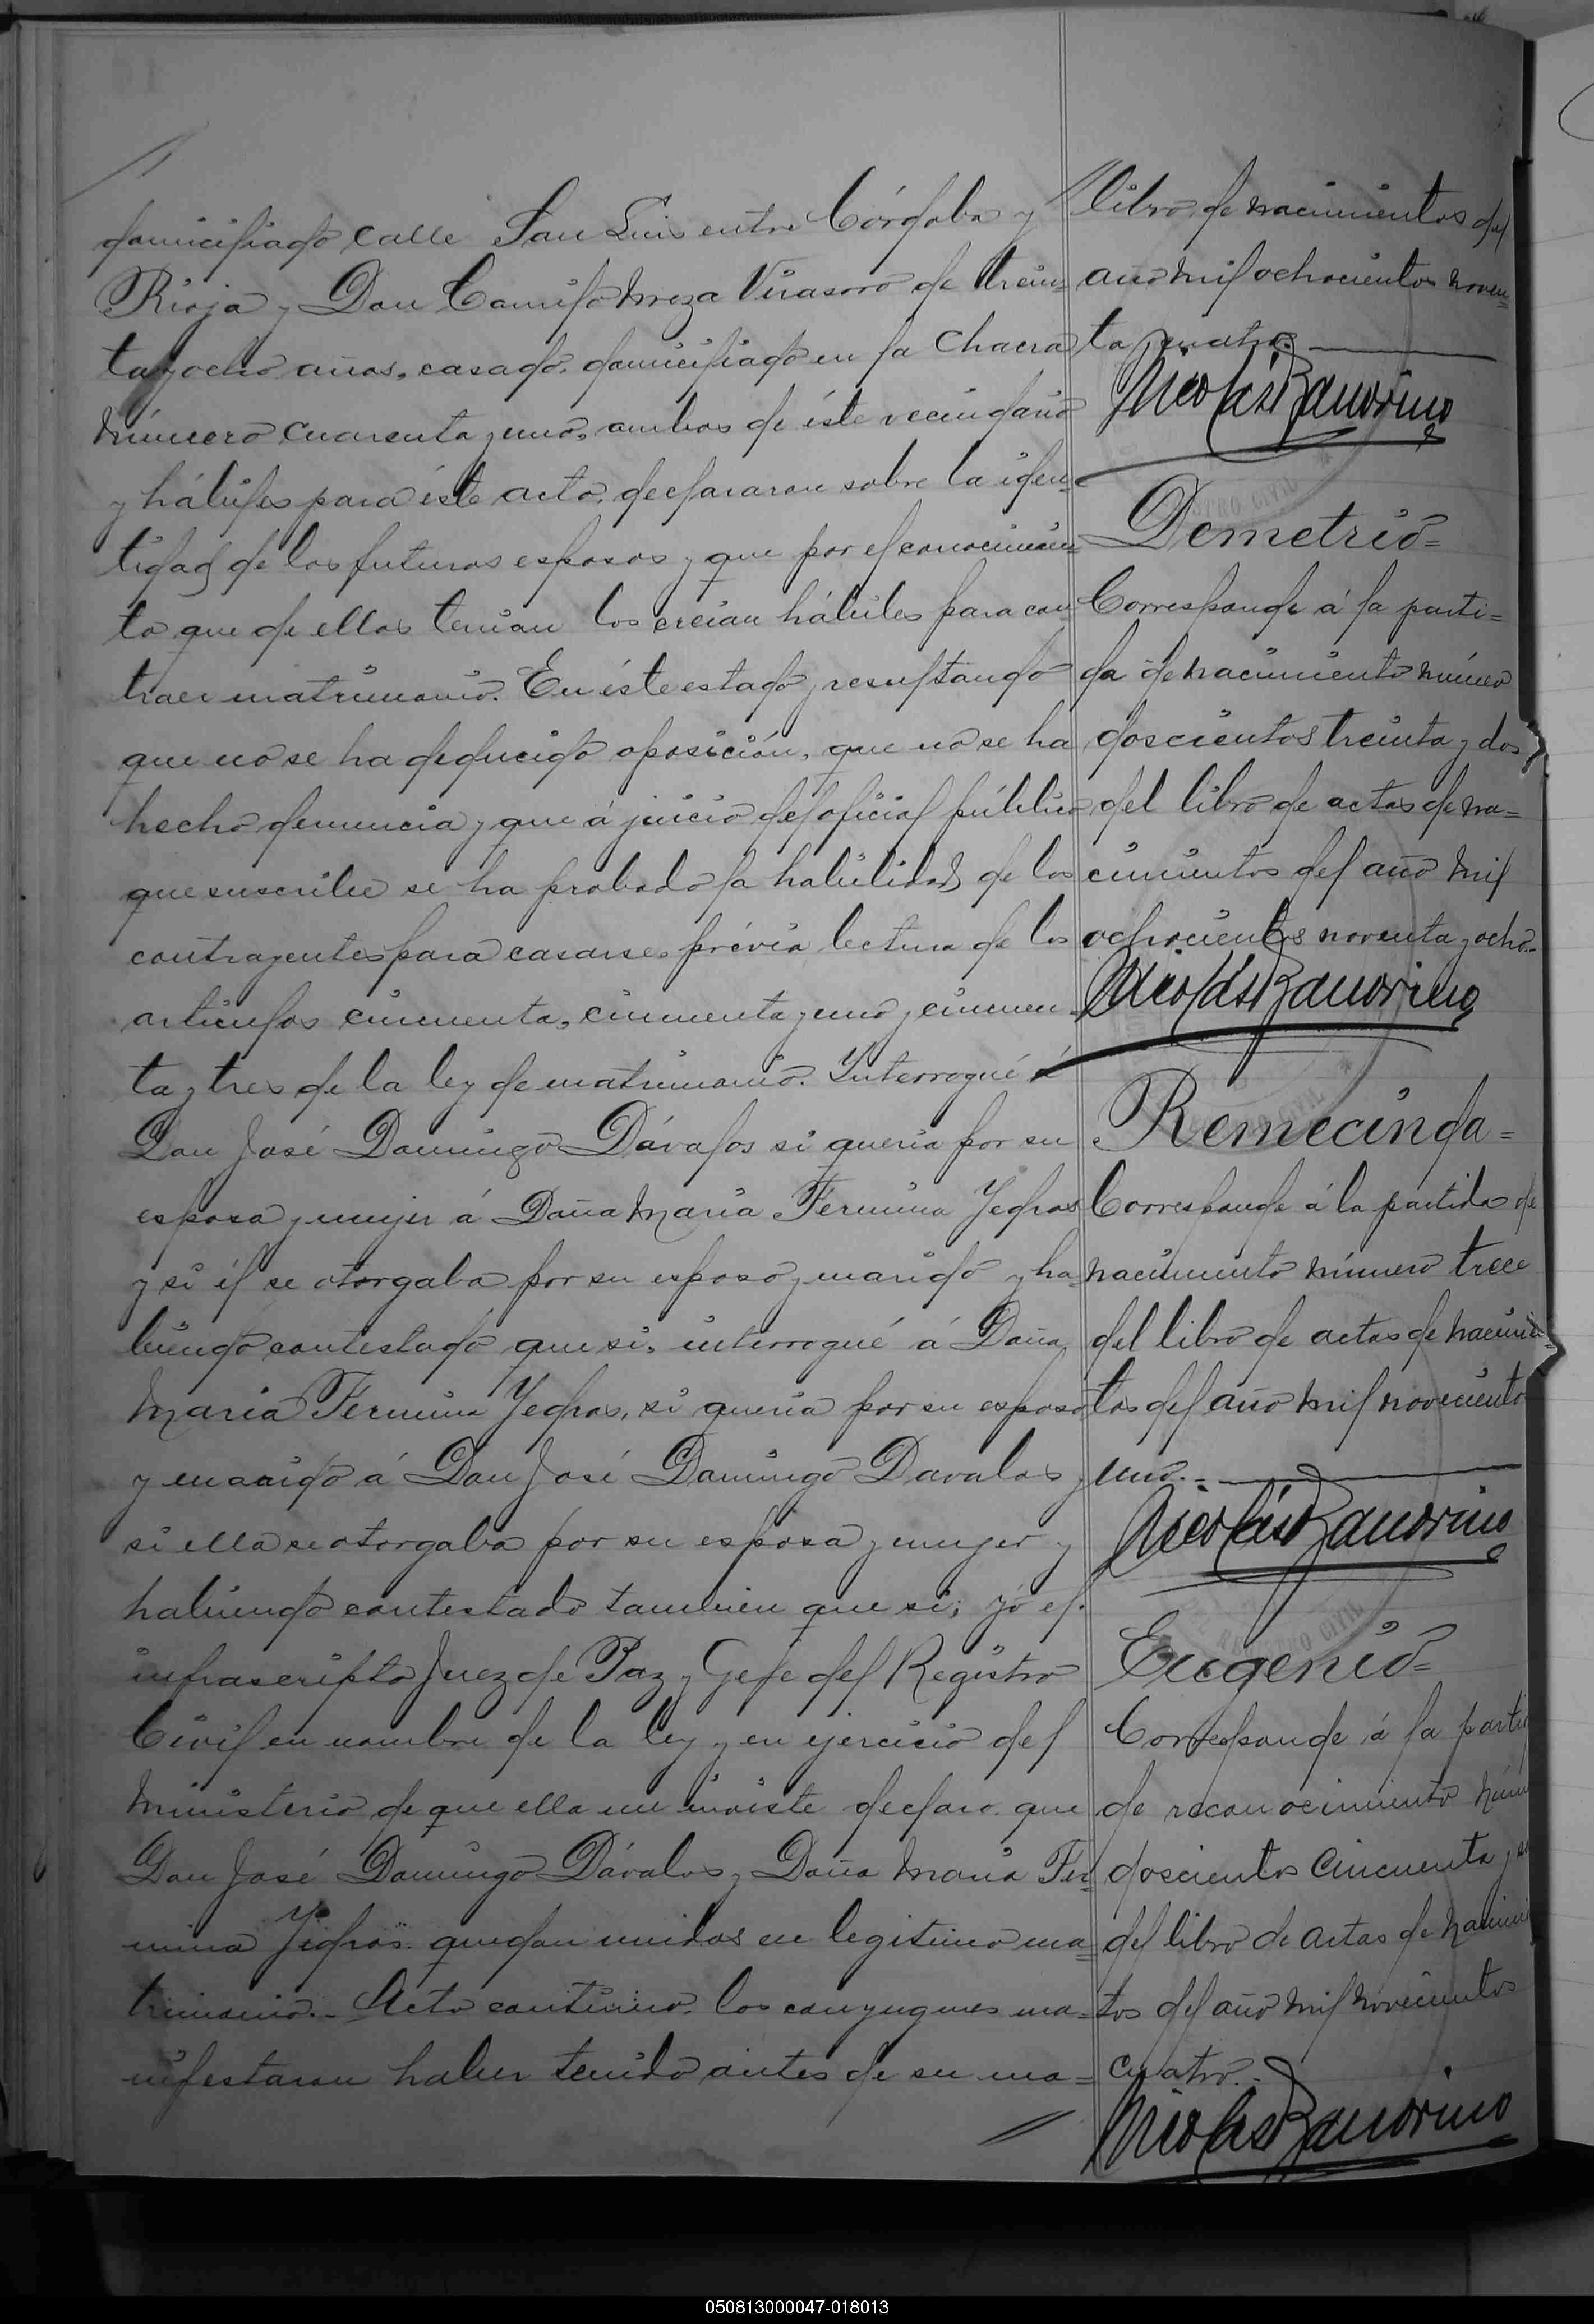 domiciliado calle San Luis entre Córdoba y
Rioja y Don Camilo Meza Virasoro de trein=
ta y ocho años, casado, domiciliado en la Chacra
número cuarenta y uno, ambos de éste vecindario
y hábiles para éste acto, declararon sobre la iden=
tidad de los futuros esposos y que por el conocimien=
to que de ellos tenian los creian hábiles para con
traer matrimonio. En éste estado y resultando
que no se ha deducido oposición, que no se ha
hecho denuncia y que á juicio del oficial público
que suscribe se ha probado la habilidad de los
contrayentes para casarse, prévia lectura de los
articulos cincuenta, cincuenta y uno y cincuen
ta y tres de la ley de matrimonio. Interrogué á
Don José Domingo Dávalos si queria por su
esposa y mujer á Doña Maria Fermina Yedros
y si él se otorgaba por su esposo y marido y ha=
biendo contestado que si, interrogué á Doña
Maria Fermina Yedros, si queria por su esposo
y marido á Don José Domingo Davalos y
si ella se otorgaba por su esposa y mujer y
habiendo contestado tambien que si; yó el
infrascripto Juez de Paz y Gefe del Registro
Civil en nombre de la ley y en ejercicio del
ministerio de que ella me inviste declaro que
Don José Domingo Dávalos y Doña Maria Fer=
mina Yedros quedan unidos en legitimo ma=
trimonio.- Acto continuo los conyugues ma=
nifestaron haber tenido antes de su ma=
libro de nacimientos del
año mil ochocientos noven=
ta y cuatro.
Nicolás Zanorino
Demetrio=
Corresponde á la parti=
da de nacimiento número
doscientos treinta y dos
del libro de actas de na=
cimientos del año mil
ochocientos noventa y ocho.
Nicolás Zanorino
Remecinda=
Corresponde á la partida de
nacimiento número trece
del libro de actas de nacimien=
tos del año mil novecientos
uno.-
Nicolás Zanorino
Eugenio=
Corresponde á la parti
de reconocimiento núm
doscientos cincuenta y
del libro de actas de nacimi
tos del año mil novecientos
cuatro.-
Nicolás Zanorino
REGISTRO CIVIL
050813000047-018013